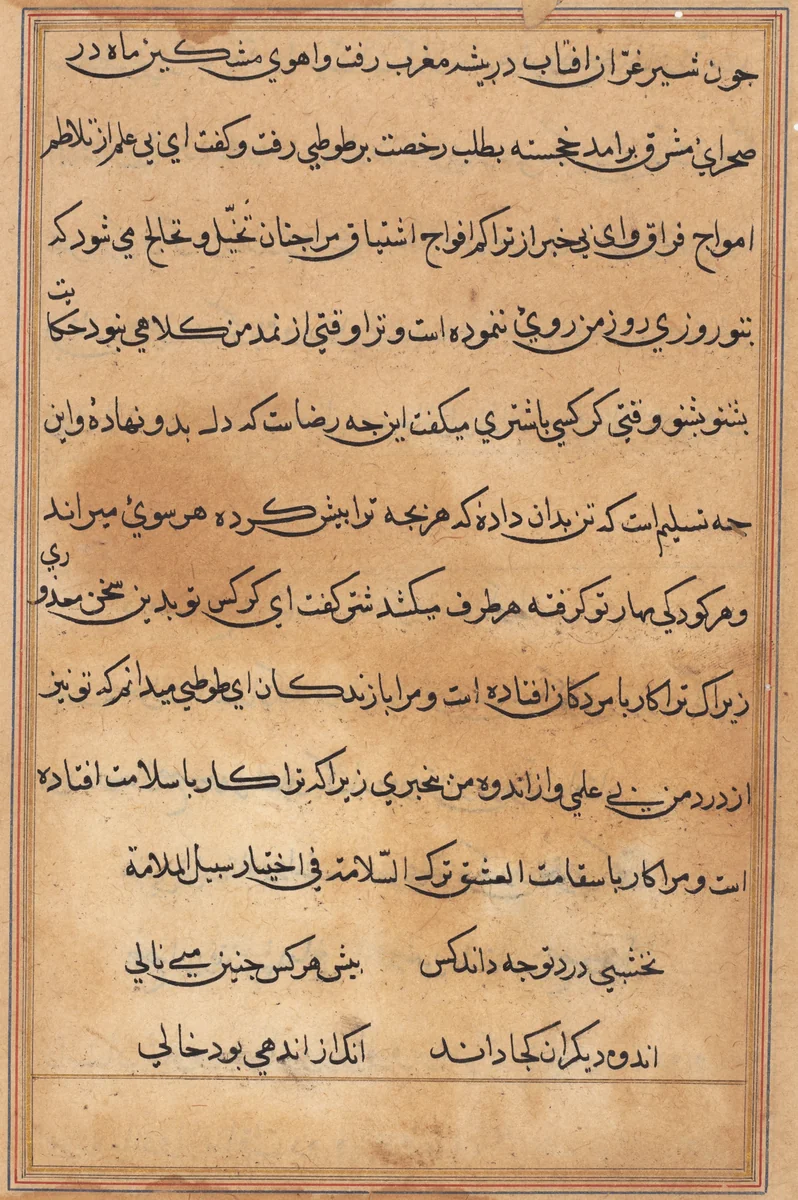 جون شیر غرّان افتاب در بیشه مغرب رفت و اهوي مشکین ماه در
صحرائ مشرق برامد خجسته بطلب رخصت بر طوطي رفت و کفت اي بي علم از تلاطم
امواج فراق و اي بي خبر از تراکم افواج اشتیاق مرا جنان تُخیّل و تخالج مي شود که
بتو روزي روز من روئ ننموده است و ترا وقتي از نمد من کلاهي نبود حکایت
بشنو بشنو وقتي کرکسي با شتري میکفت این جه رضاست که دل بدو نهادهٔ و این
جه تسلیم است که تن بدان دادهٔ که هر بجه ترا بیش کرده هر سوئ میراند
و هر کودکي مهار تو کرفته هر طرف میکشد شتر کفت اي کرکس تو بدین سخن معذوري
زیراک ترا کار با مردکان افتاده است و مرا با زندکان اي طوطي میدانم که تو نیز
از درد من بي علمي و از اندوه من بیخبري زیراکه ترا کار با سلامت افتاده
است و مرا کار با سقامت العشق ترک السّلامة في اختیار سبیل الملامة
نخشبي درد تو جه داند کس بیش هر کس جنین مي نالي
اندوه دیکران کجا داند انک از اندهي بود خالي